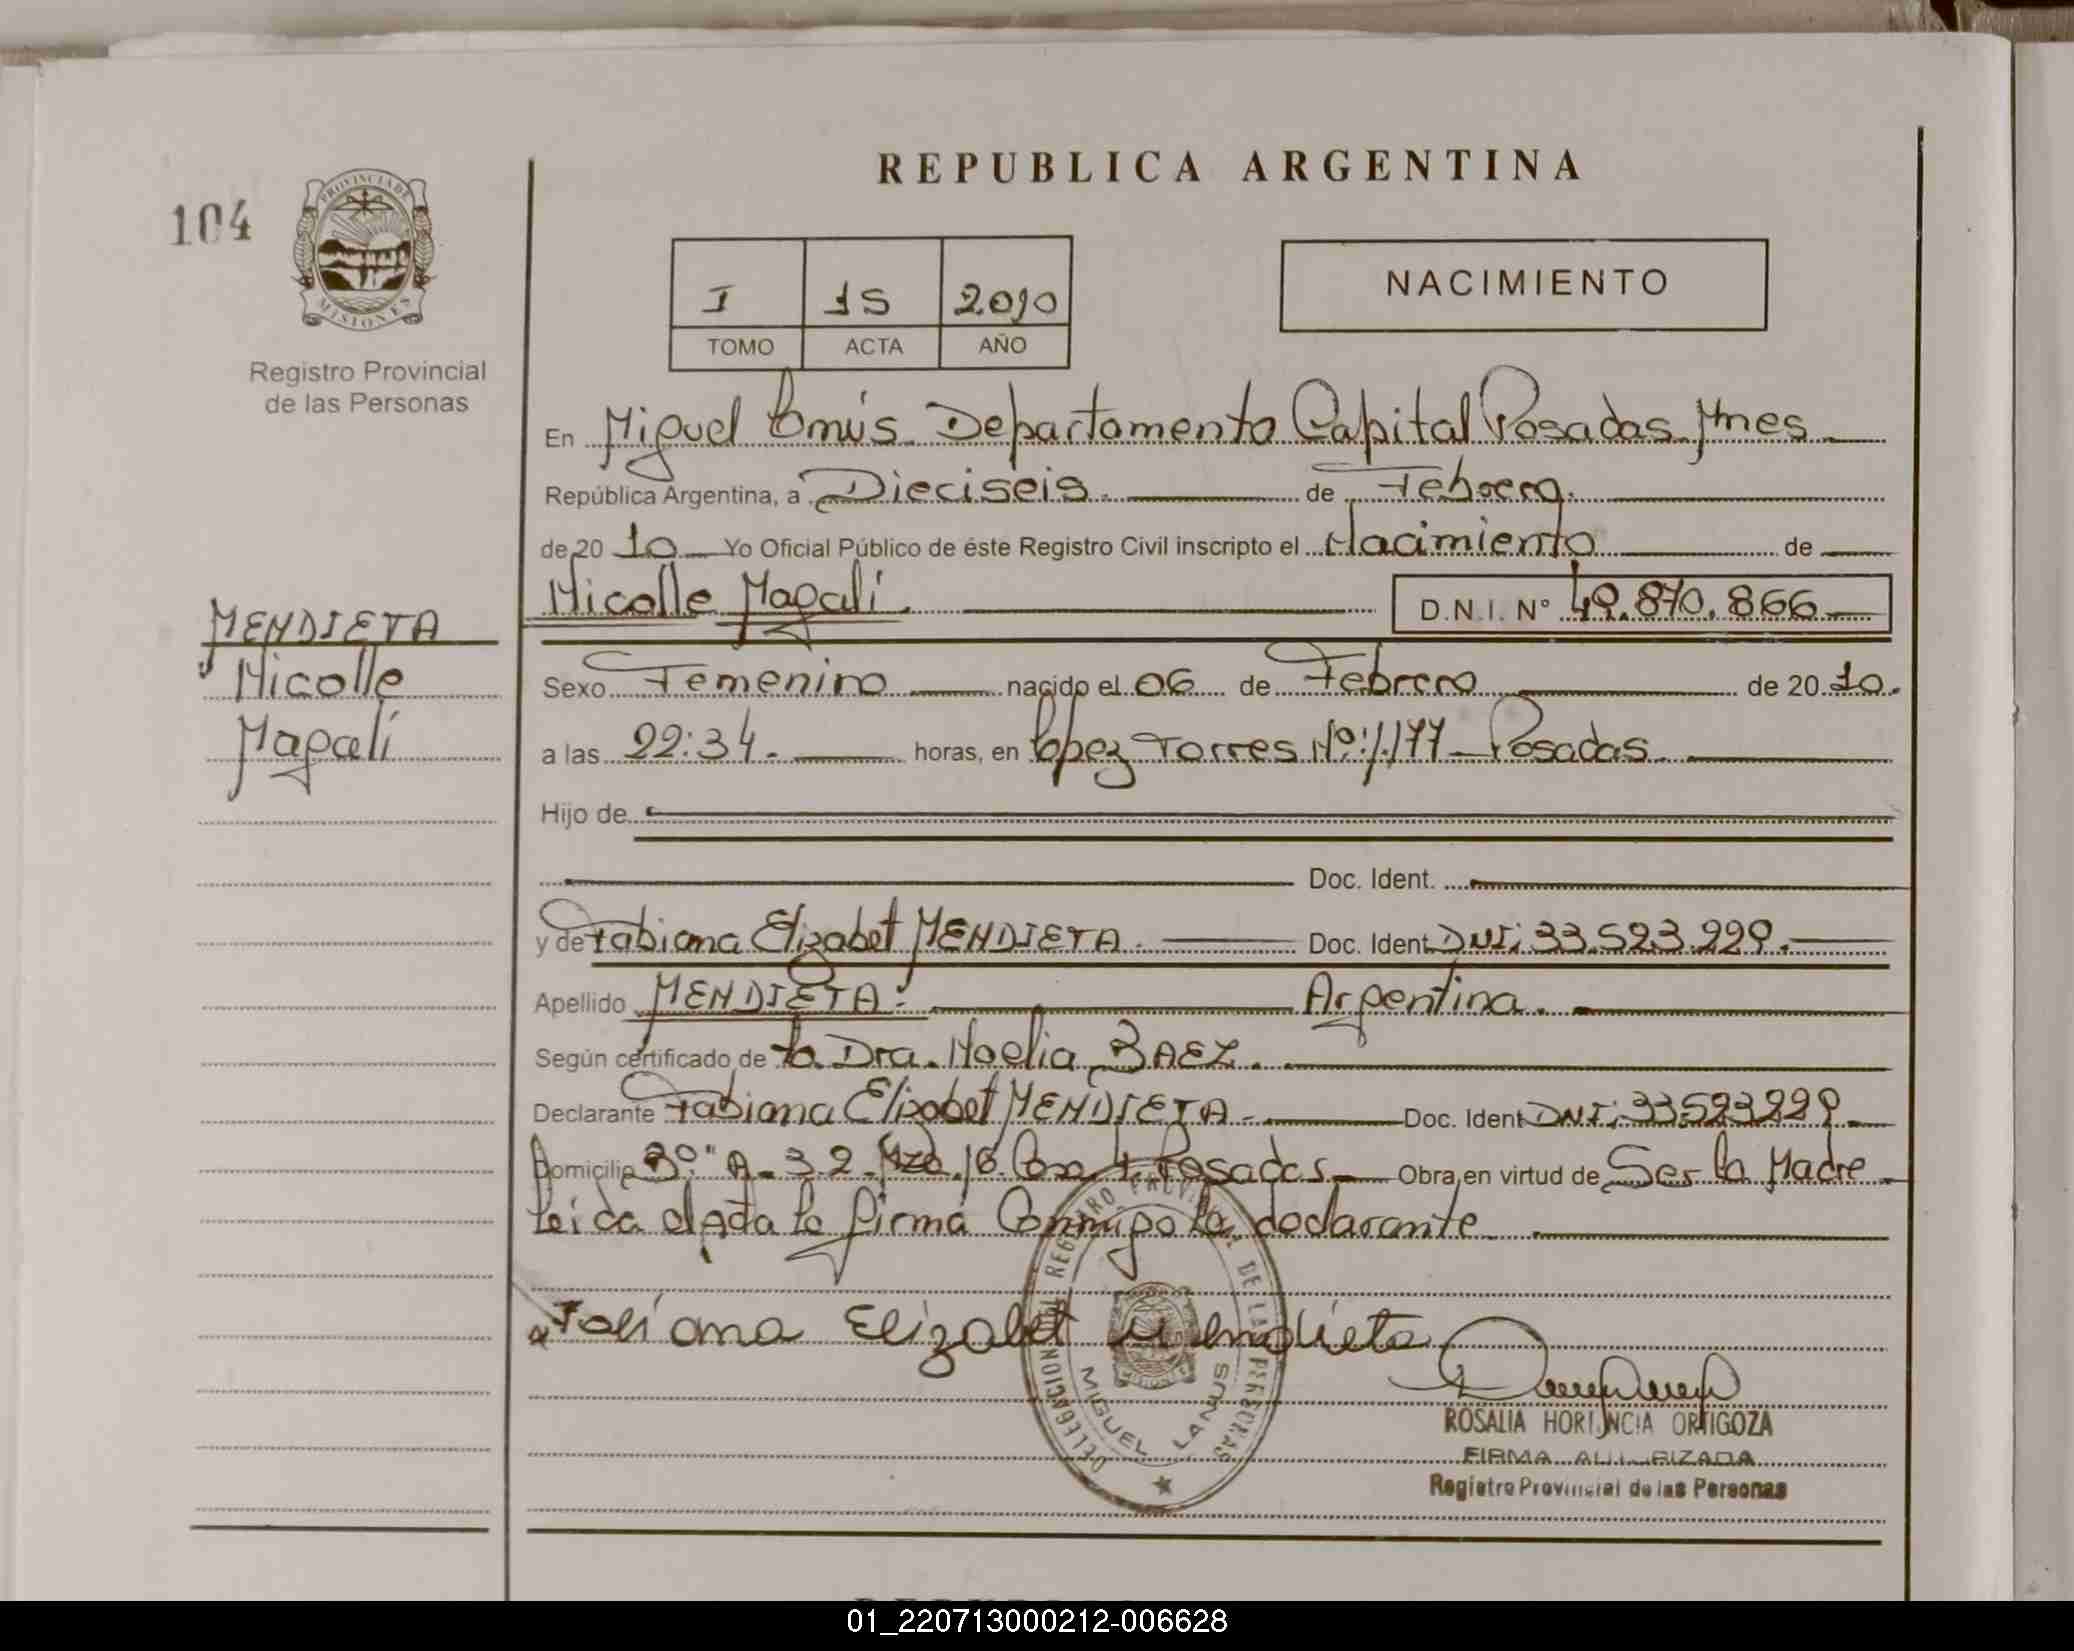 REPUBLICA ARGENTINA
104
PROVINCIA DE MISIONES
Registro Provincial
de las Personas
I 15 2010
TOMO ACTA AÑO
NACIMIENTO
En Miguel Lanús Departamento Capital Posadas Mnes
República Argentina, a Dieciseis. de Febrero.
de 20 10 Yo Oficial Público de éste Registro Civil inscripto el Nacimiento de
Nicolle Magalí. D.N.I. N° 49.870.866
MENDIETA
Nicolle
Magalí
Sexo Femenino nacido el 06 de Febrero de 20 10.
a las 22:34. horas, en López Torres Nº: 1.177 Posadas.
Hijo de
Doc. Ident.
y de Fabiana Elizabet MENDIETA. Doc. Ident. DNI: 33.523.229.
Apellido MENDIETA. Argentina.
Según certificado de la Dra. Noelia BAEZ.
Declarante Fabiana Elizabet MENDIETA. Doc. Ident DNI: 33523229.
Domicilio A-3.2 Mza 16 Casa 4 Posadas. Obra en virtud de Ser la Madre
Leída el acta la firma Conmigo la declarante.
Fabiana Elizabet Mendieta
DELEGACION REGISTRO PROVINCIAL DE LAS PERSONAS
MIGUEL LANUS
ROSALIA HORTENCIA ORTIGOZA
FIRMA AUTORIZADA
Registro Provincial de las Personas
01_220713000212-006628